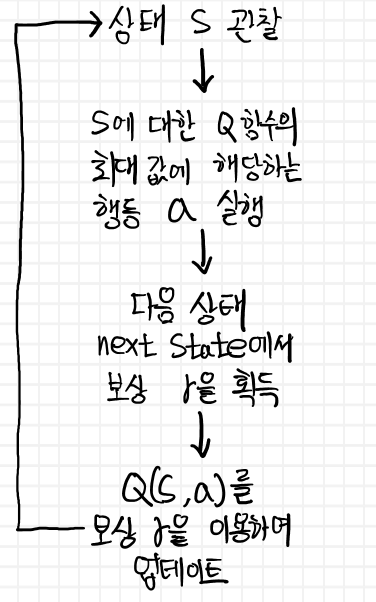 상태 S 관찰
S에 대한 Q함수의
최대값에 해당하는
행동 a 실행
다음 상태
next State에서
보상 r을 획득
Q(S,a)를
보상 r을 이용하여
업데이트